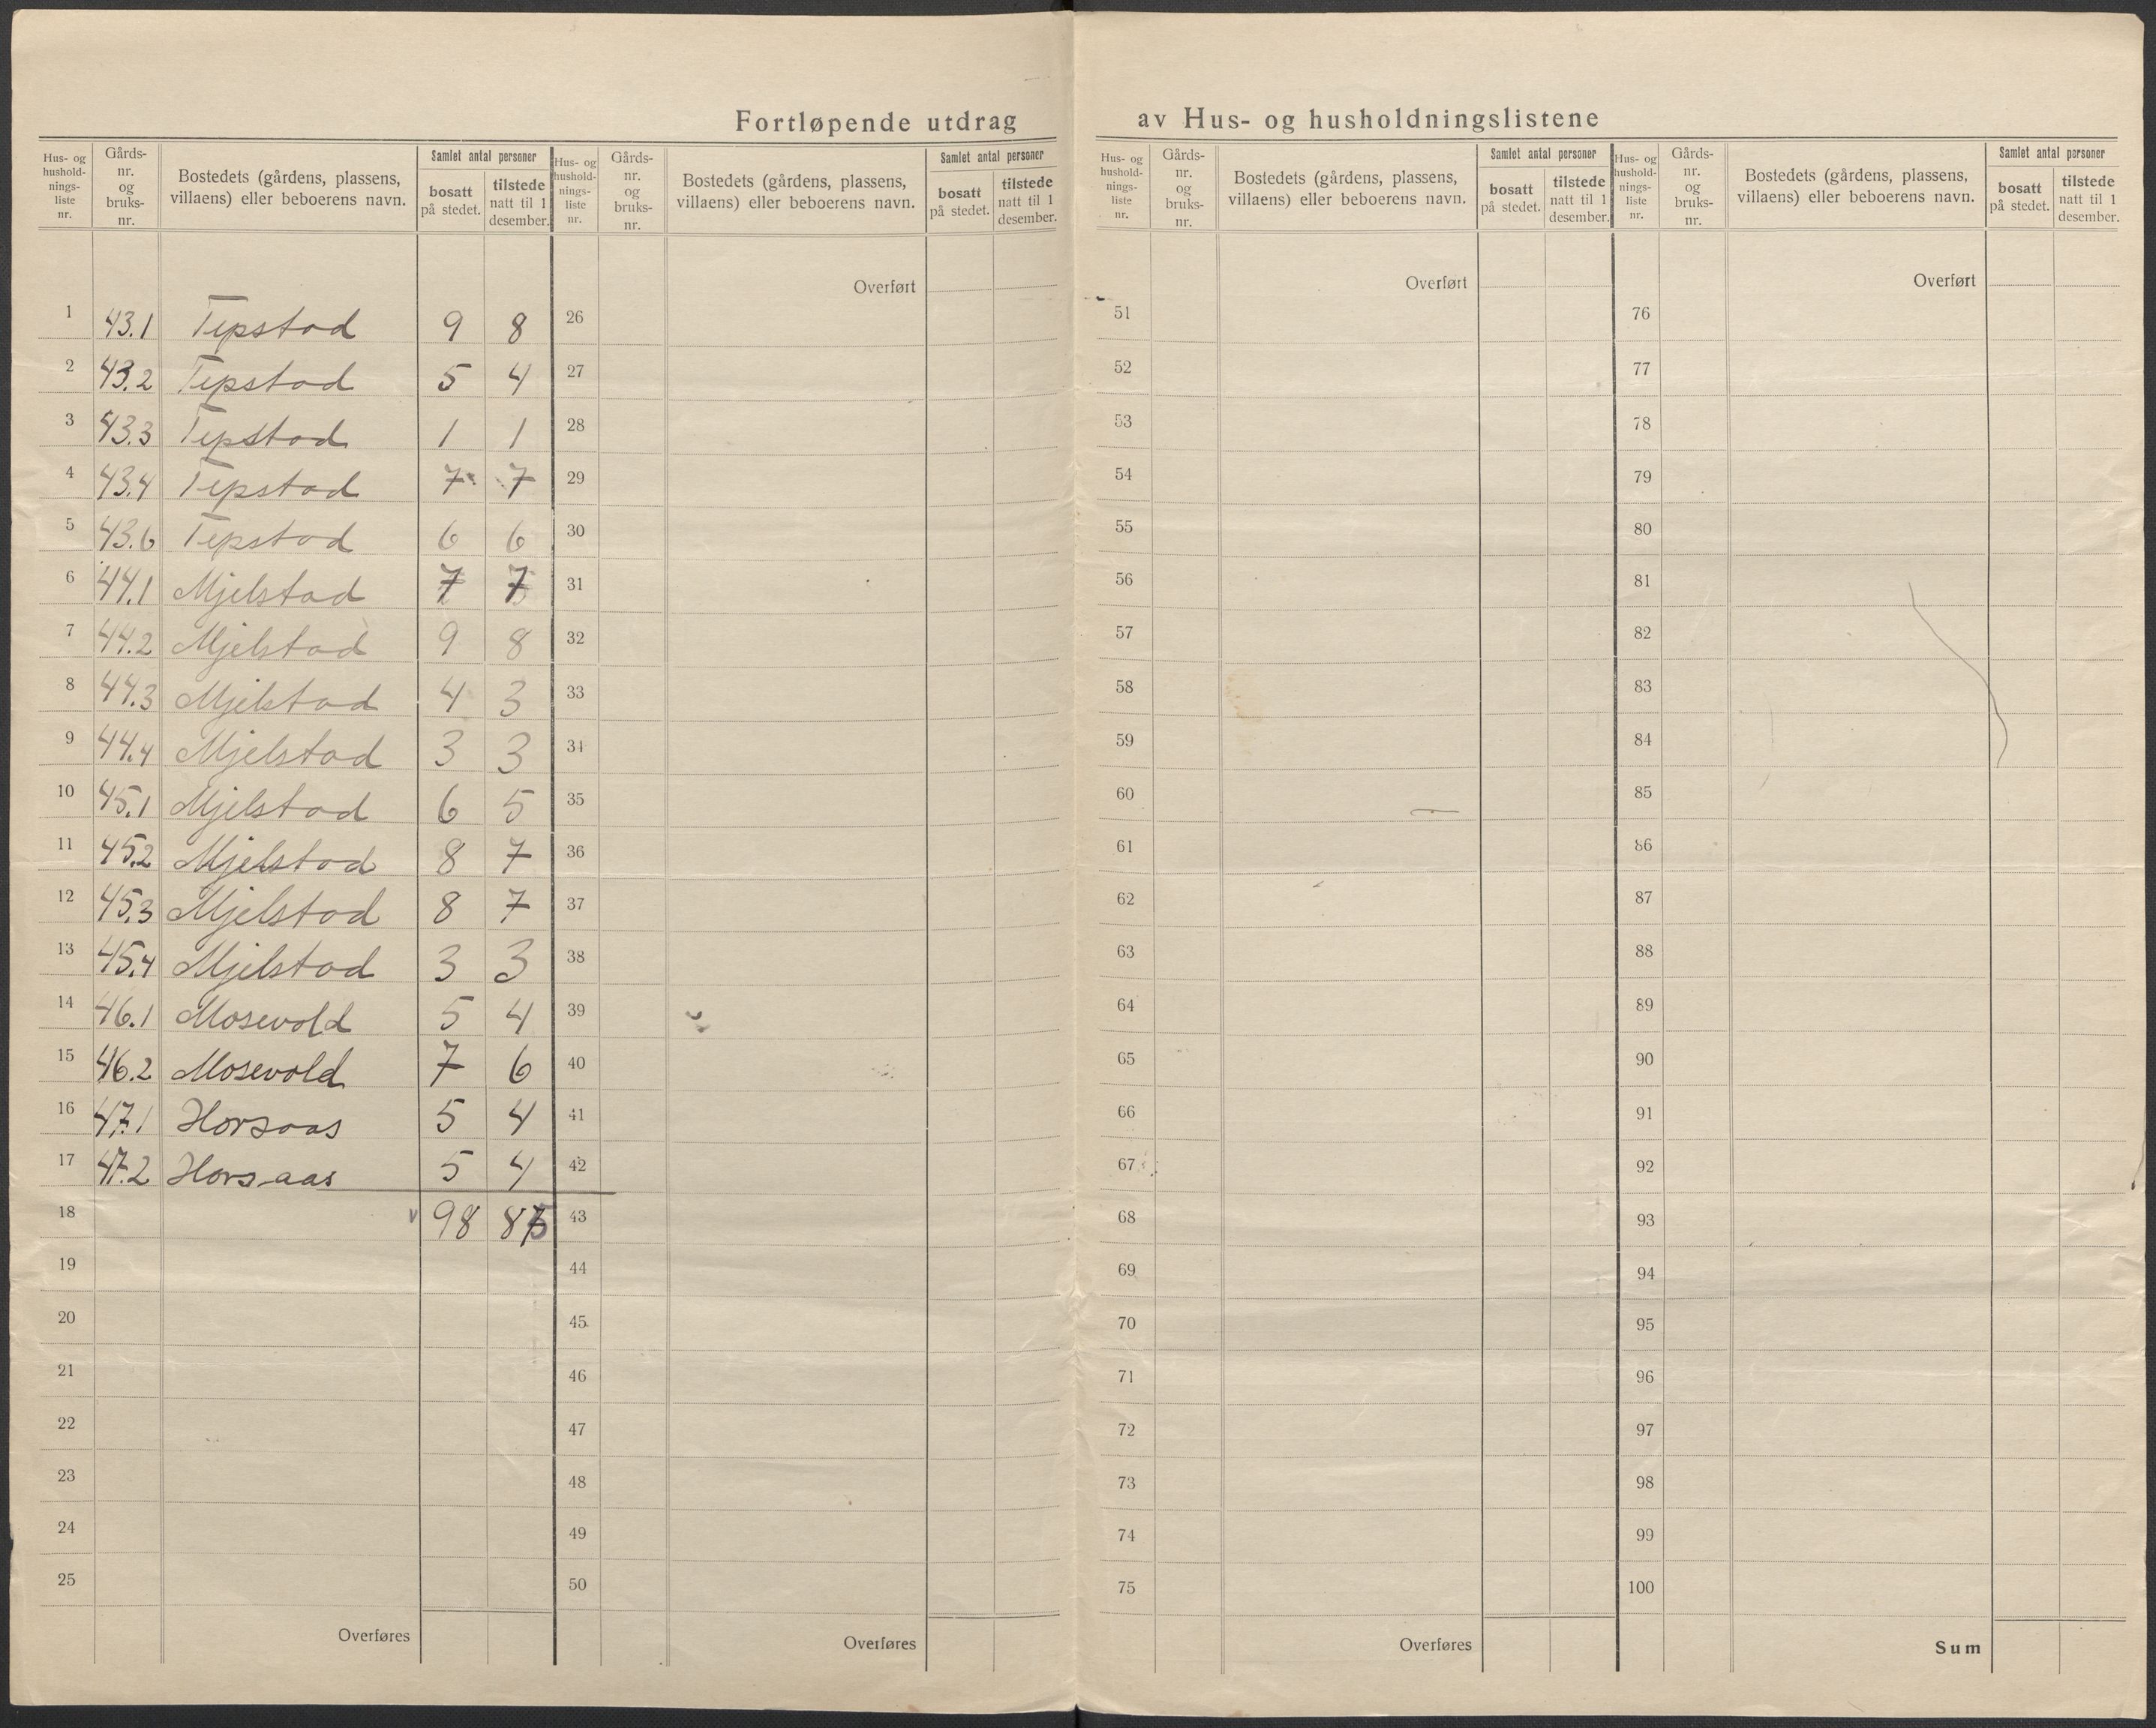 Fortløpende utdrag av Hus- og husholdningslistene
Hus- og hushold-nings-liste nr. Gårds-nr. og bruks-nr. Bostedets (gårdens, plassens, villaens) eller beboerens navn. Samlet antal personer bosatt på stedet. tilstede natt til 1 desember.
1 43.1 Tepstad 9 8
2 43.2 Tepstad 5 4
3 43.3 Tepstad 1 1
4 43.4 Tepstad 7 7
5 43.6 Tepstad 6 6
6 44.1 Mjelstad 7 7
7 44.2 Mjelstad 9 8
8 44.3 Mjelstad 4 3
9 44.4 Mjelstad 3 3
10 45.1 Mjelstad 6 5
11 45.2 Mjelstad 8 7
12 45.3 Mjelstad 8 7
13 45.4 Mjelstad 3 3
14 46.1 Mosevold 5 4
15 46.2 Mosevold 7 6
16 47.1 Horsaas 5 4
17 47.2 Horsaas 5 4
18 98
19
20
21
22
23
24
25
Overføres
Hus- og hushold-nings-liste nr. Gårds-nr. og bruks-nr. Bostedets (gårdens, plassens, villaens) eller beboerens navn. Samlet antal personer bosatt på stedet. tilstede natt til 1 desember.
Overført
26
27
28
29
30
31
32
33
34
35
36
37
38
39
40
41
42
43
44
45
46
47
48
49
50
Overføres
Hus- og hushold-nings-liste nr. Gårds-nr. og bruks-nr. Bostedets (gårdens, plassens, villaens) eller beboerens navn. Samlet antal personer bosatt på stedet. tilstede natt til 1 desember.
Overført
51
52
53
54
55
56
57
58
59
60
61
62
63
64
65
66
67
68
69
70
71
72
73
74
75
Overføres
Hus- og hushold-nings-liste nr. Gårds-nr. og bruks-nr. Bostedets (gårdens, plassens, villaens) eller beboerens navn. Samlet antal personer bosatt på stedet. tilstede natt til 1 desember.
Overført
76
77
78
79
80
81
82
83
84
85
86
87
88
89
90
91
92
93
94
95
96
97
98
99
100
Sum